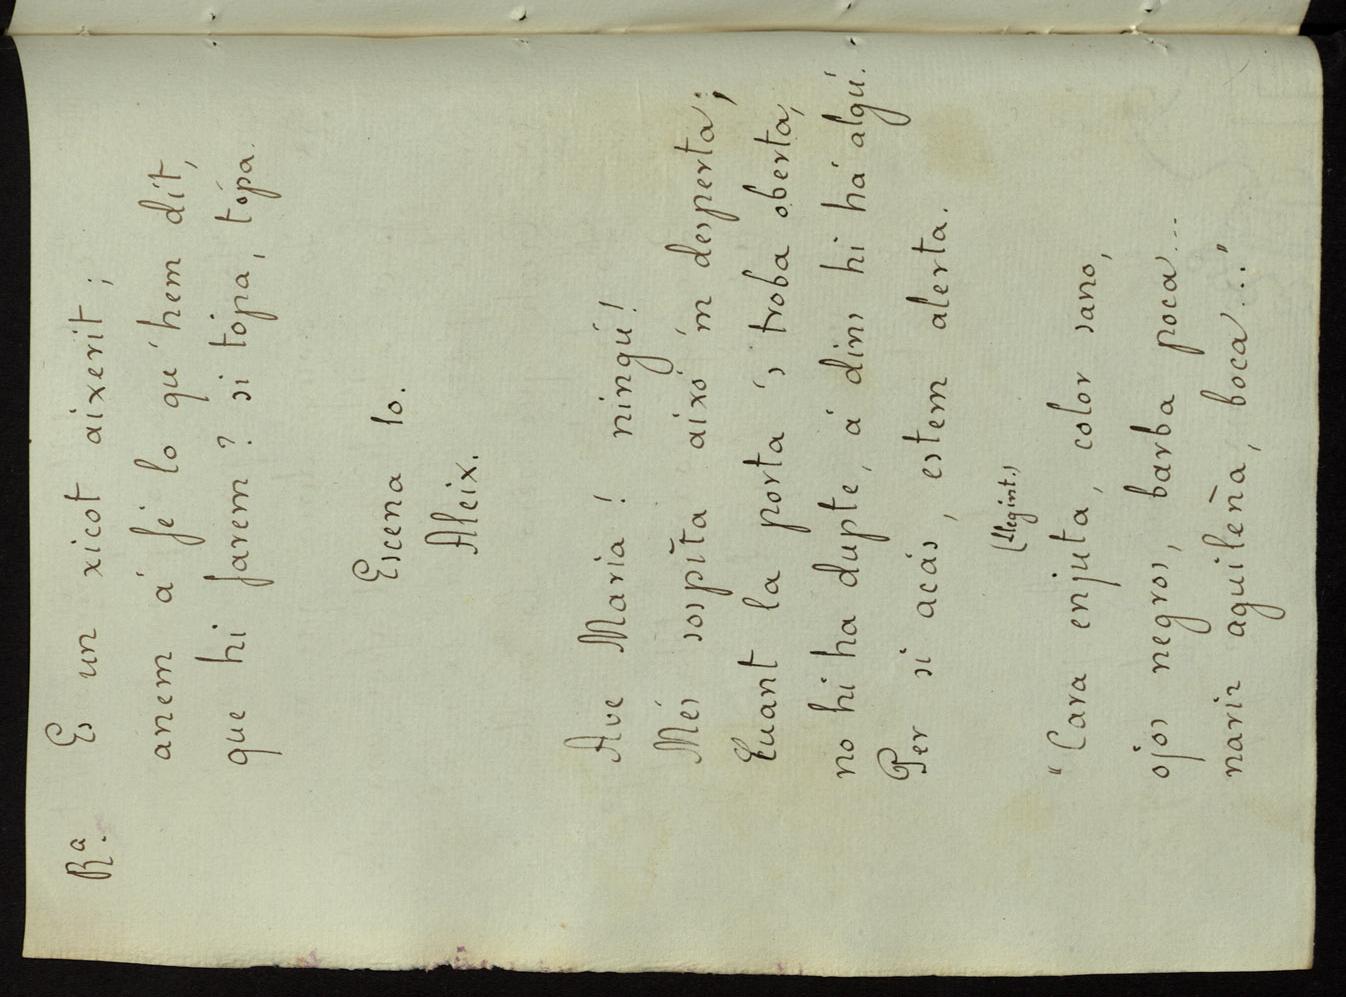 Rª. Es un xicot aixerit;
anem á fé lo qu' hem dit,
que hi farem? si tópa, tópa.
Escena 10.
Aleix.
Ave Maria! ningú!
Més sospita aixó 'm desperta;
Quant la porta 's troba oberta,
no hi ha dupte, á dins hi há algú.
Per si acás, estem alerta.
(Llegint.)
"Cara enjuta, color sano,
ojos negros, barba poca...
nariz aguileña, boca..."